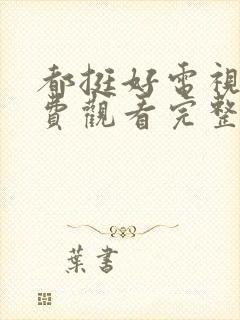 都挺好電視
費觀看完整
葉書